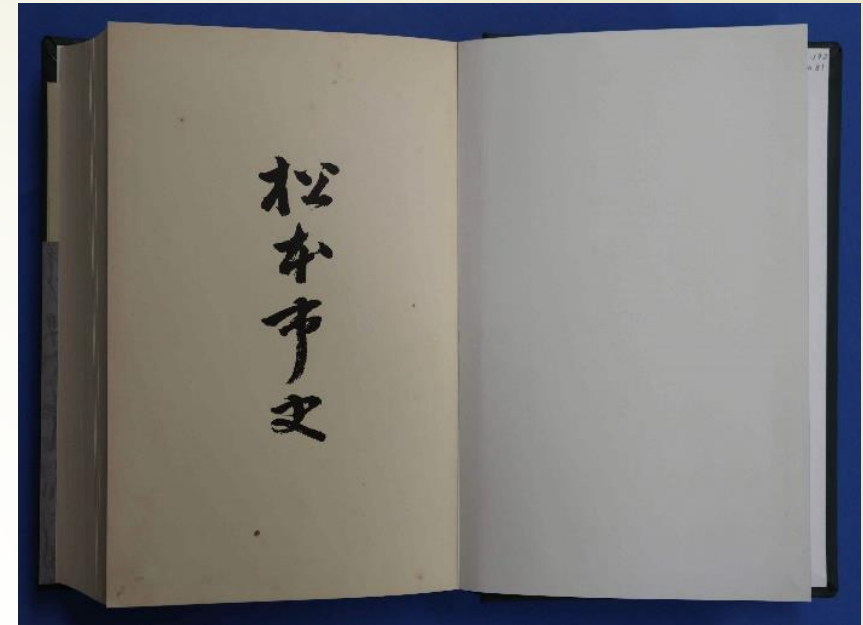 松本市史